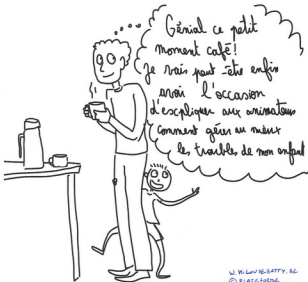 Génial ce petit
moment café!
Je vais peut-être enfin
avoir l'occasion
d'expliquer aux animateurs
comment gérer au mieux
les troubles de mon enfant